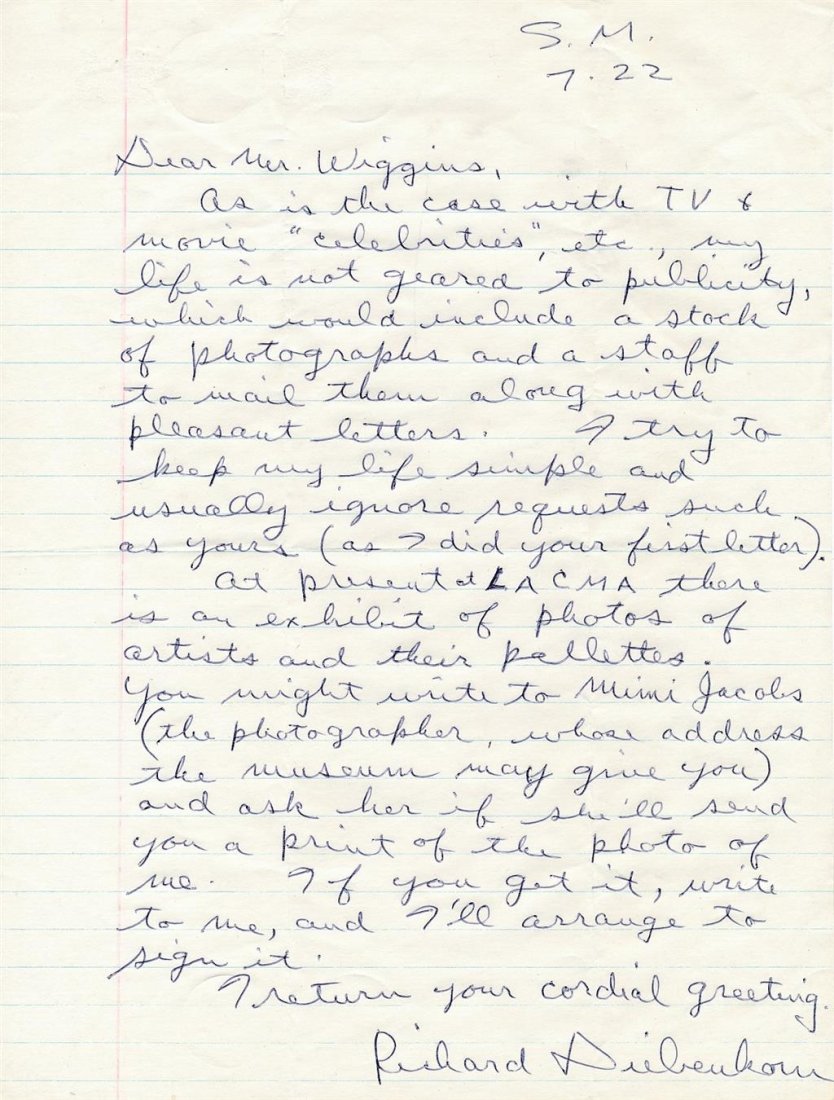 S. M.
7.22
Dear Mr. Wiggins,
As is the case with TV &
movie "celebrities", etc., my
life is not geared to publicity,
which would include a stock
of photographs and a staff
to mail them along with
pleasant letters. I try to
keep my life simple and
usually ignore requests such
as yours (as I did your first letter).
At present at LACMA there
is an exhibit of photos of
artists and their pallettes.
You might write to Mimi Jacobs
(the photographer, whose address
the museum may give you)
and ask her if she'll send
you a print of the photo of
me. If you get it, write
to me, and I'll arrange to
sign it.
I return your cordial greeting.
Richard Diebenkorn